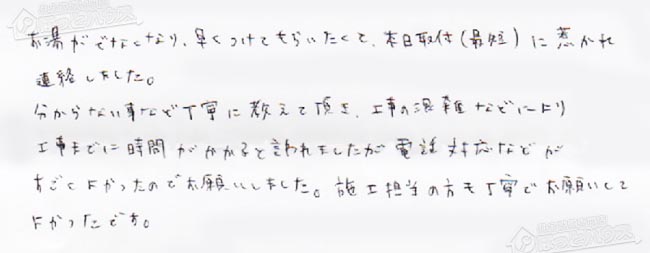 お湯がでなくなり、早くつけてもらいたくて、本日取付(最短)に惹かれ
連絡しました。
分からない事など丁寧に教えて頂き、工事の混雑などにより
工事までに時間がかかると言われましたが電話対応などが
すごくよかったのでお願いしました。施工担当の方も丁寧でお願いして
よかったです。